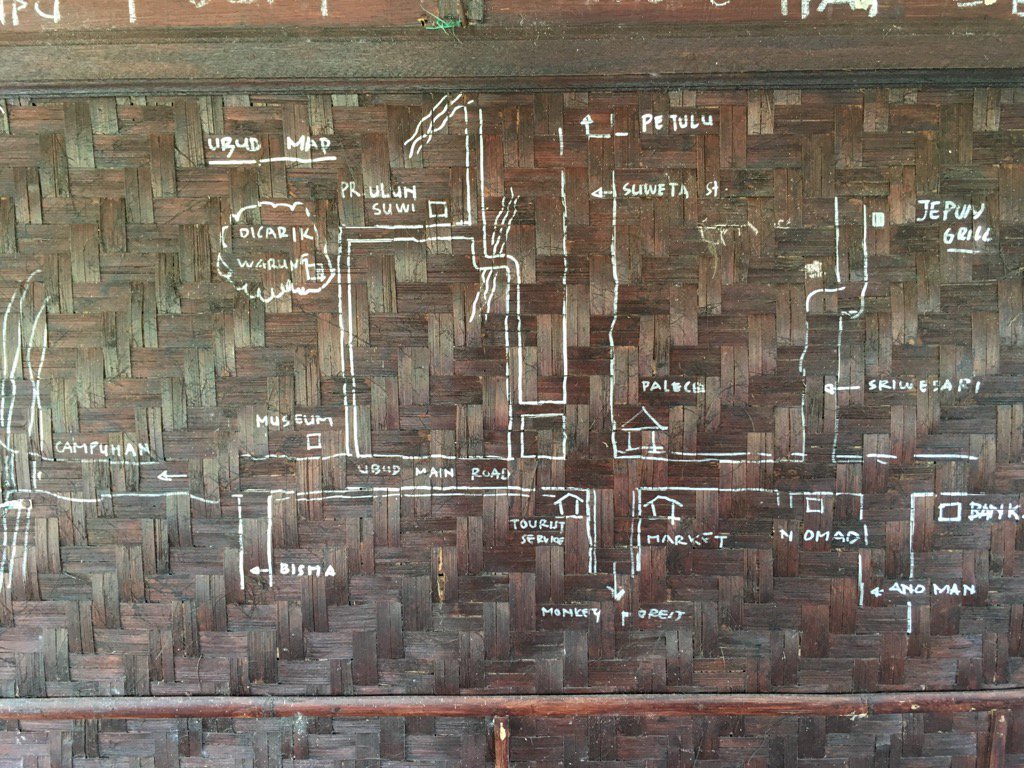 UBUD MAP
PETULU
PR. ULUN
SUWI
SUWETA St
DICARIK
WARUNG
JEPUN
GRILL
PALECE
SRIWEDARI
MUSEUM
CAMPUHAN
UBUD MAIN ROAD
TOURIST
SERVICE
MARKET
NOMAD
BANK
BISMA
ANOMAN
MONKEY FOREST